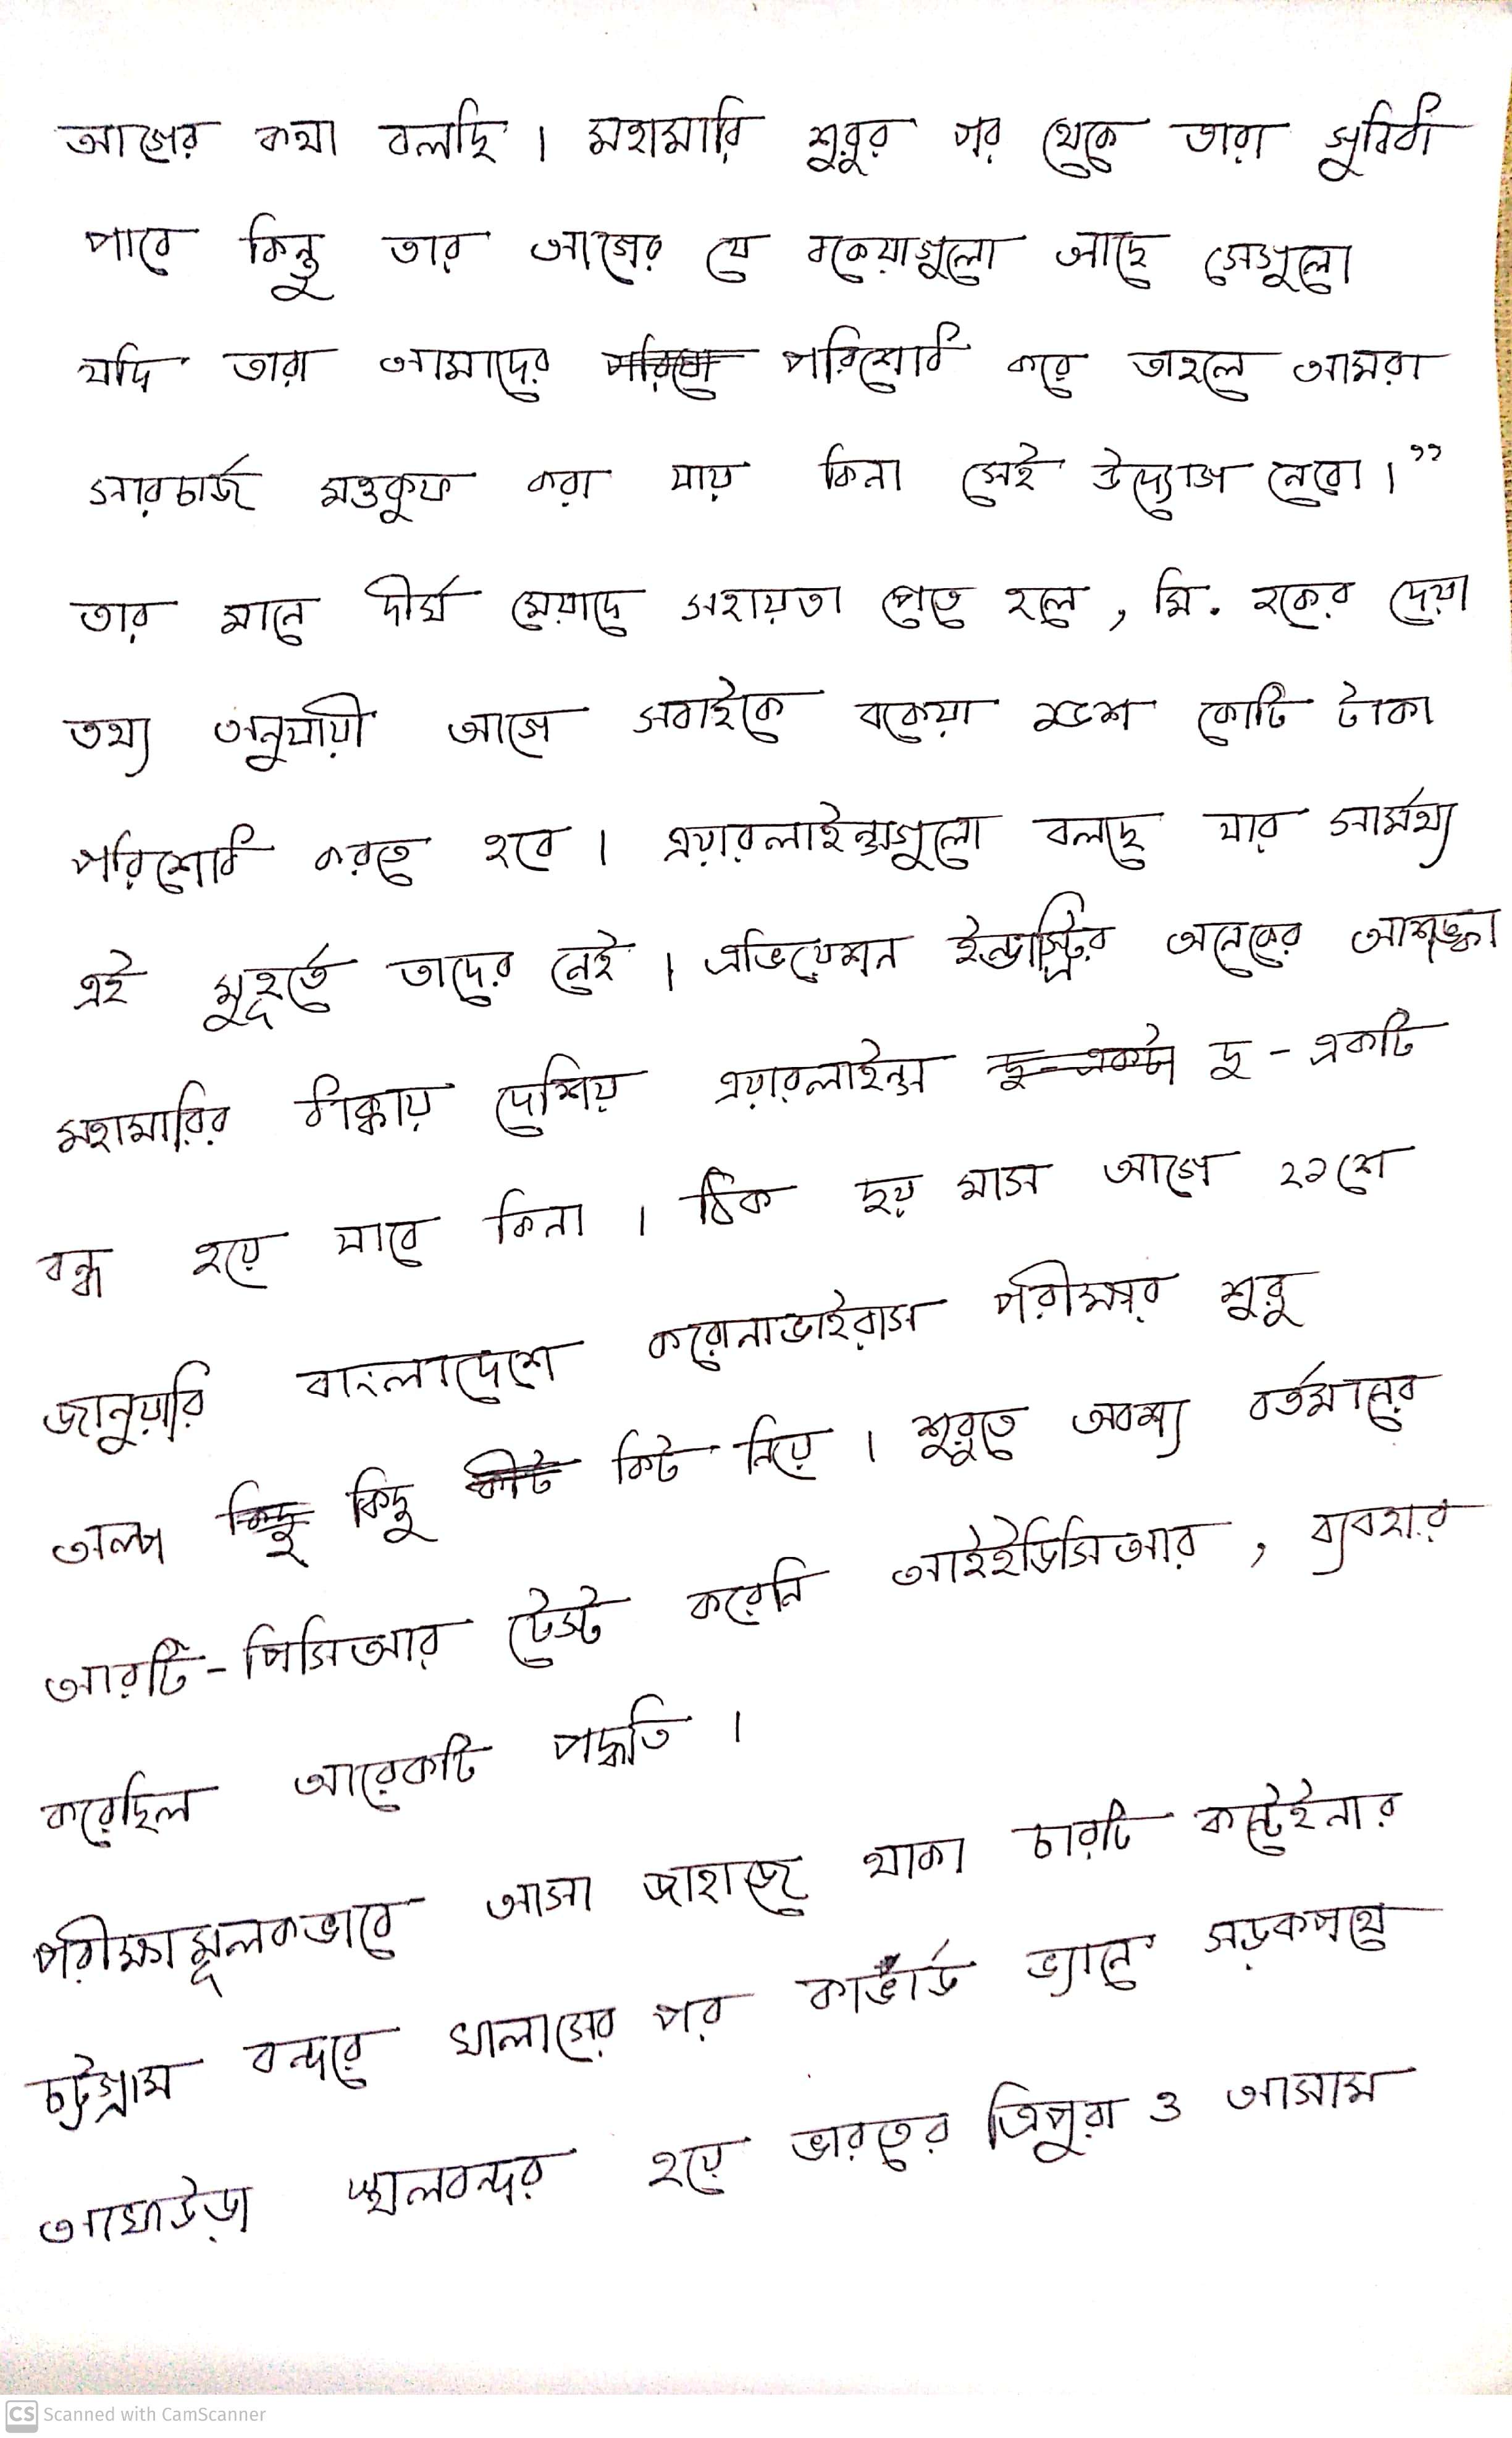 আগের কথা বলছি। মহামারি শুরুর পর থেকে তারা সুবিধা
পাবে কিন্তু তার আগের যে বকেয়াগুলো আছে সেগুলো
যদি তারা আমাদের পরিশোধ করে তাহলে আমরা
সারচার্জ মওকুফ করা যায় কিনা সেই উদ্যোগ নেবো।”
তার মানে দীর্ঘ মেয়াদে সহায়তা পেতে হলে, মি. হকের দেয়া
তথ্য অনুযায়ী আগে সবাইকে বকেয়া কোটি টাকা
পরিশোধ করতে হবে। এয়ারলাইন্সগুলো বলছে যার সার্মথ্য
এই মুহূর্তে তাদের নেই। এভিয়েশন ইন্ডাস্ট্রির অনেকের আশঙ্কা
মহামারির ধাক্কায় দেশিয় এয়ারলাইন্স দু-একটি
বন্ধ হয়ে যাবে কিনা। ঠিক ছয় মাস আগে ২১শে
জানুয়ারি বাংলাদেশে করোনাভাইরাস পরীক্ষার শুরু
অল্প কিছু কিট নিয়ে। শুরুতে অবশ্য বর্তমানের
আরটি-পিসিআর টেস্ট করেনি আইইডিসিআর, ব্যবহার
করেছিল আরেকটি পদ্ধতি।
পরীক্ষামূলকভাবে আসা জাহাজে থাকা চারটি কন্টেইনার
চট্টগ্রাম বন্দরে খালাসের পর কাভার্ড ভ্যানে সড়কপথে
আখাউড়া স্থলবন্দর হয়ে ভারতের ত্রিপুরা ও আসাম
CS Scanned with CamScanner